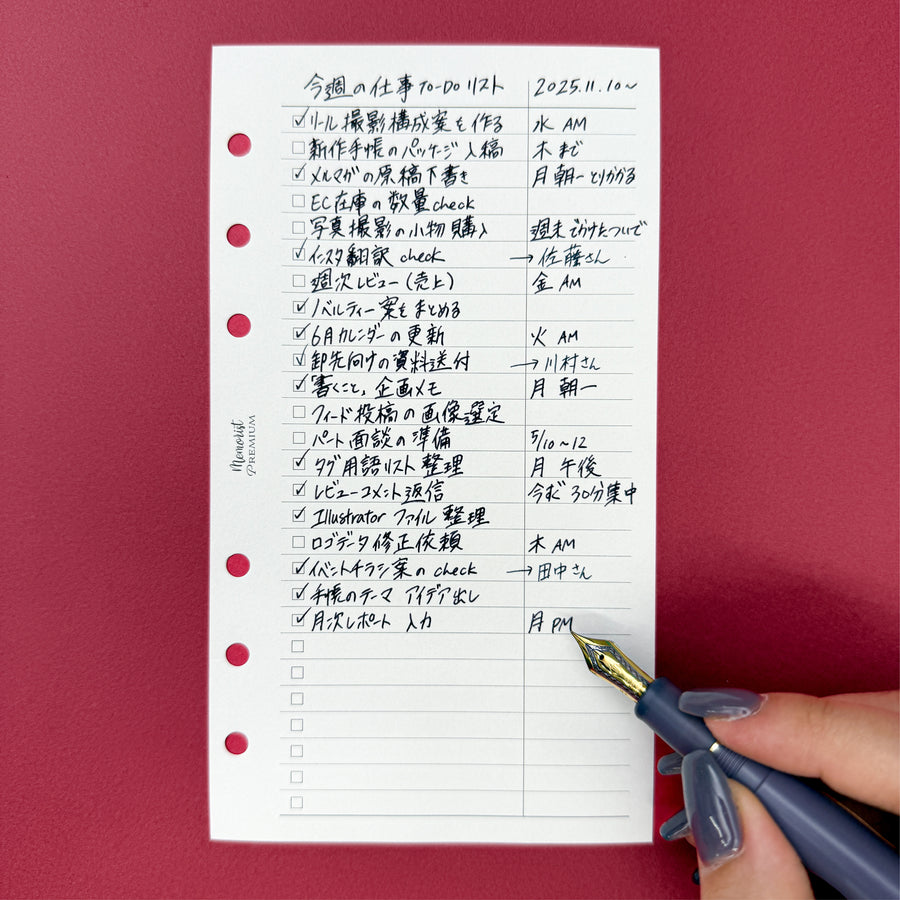 今週の仕事 TO-DO リスト 2025.11.10~
リール撮影構成案を作る 水 AM
新作手帳のパッケージ入稿 木まで
メルマガの原稿下書き 月 朝一とりかかる
EC在庫の数量check
写真撮影の小物購入 週末でかけたついで
インスタ翻訳 check →佐藤さん
週次レビュー(売上) 金 AM
ノベルティー案をまとめる
6月カレンダーの更新 火 AM
卸先向けの資料送付 →川村さん
「書くこと」企画メモ 月 朝一
フィード投稿の画像選定
パート面談の準備 5/10~12
タグ用語リスト整理 月 午後
レビューコメント返信 今すぐ 30分集中
Illustrator ファイル整理
ロゴデータ修正依頼 木 AM
イベントチラシ案の check →田中さん
手帳のテーマ アイデア出し
月次レポート 入力 月 PM
Memorist
PREMIUM